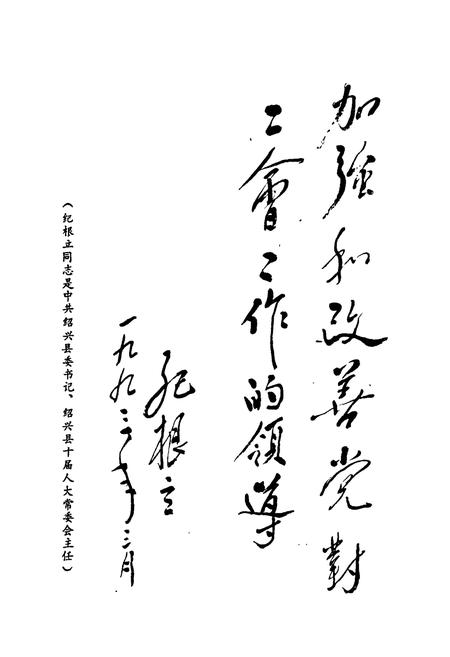 加強和改善党對
工會工作的領導
纪根立
一九九三年三月
（纪根立同志是中共绍兴县委书记、绍兴县十届人大常委会主任）